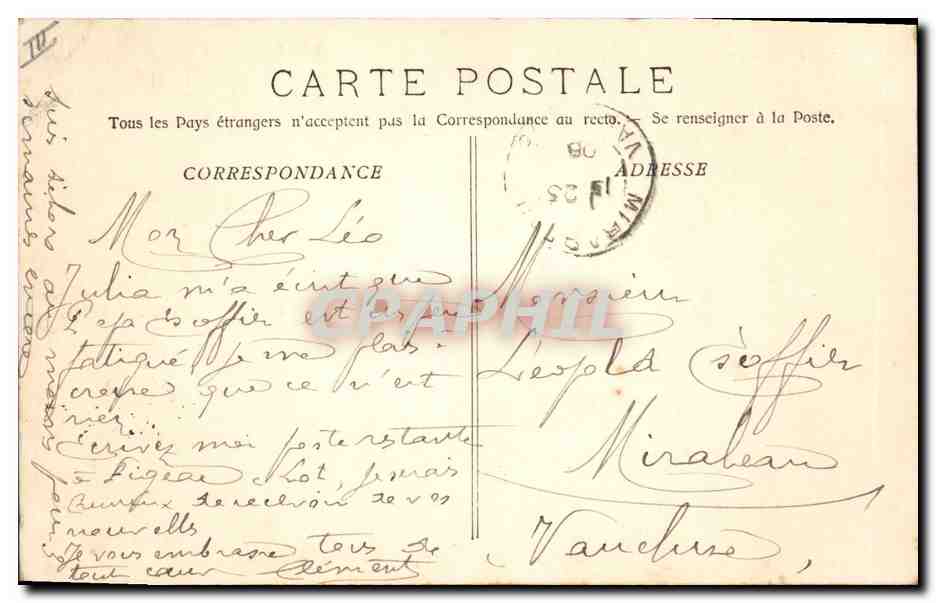 III
CARTE POSTALE
Tous les Pays étrangers n'acceptent pas la Correspondance au recto. - Se renseigner à la Poste.
CORRESPONDANCE
Mon Cher Léo
Julia m'a écrit que
Papa Soffier est un peu
fatigué, je me plais
creire que ce n'est
rien.
Ecrivez moi poste restante
à Figeac Lot, je serais
heureux de recevoir de vos
nouvelles
Je vous embrasse tous de
tout cœur Clément
suis dehors au moins pour
semaines encore
ADRESSE
Monsieur
Léopold Soffier
Mirabeau
Vaucluse
25
08
CPAPHIL